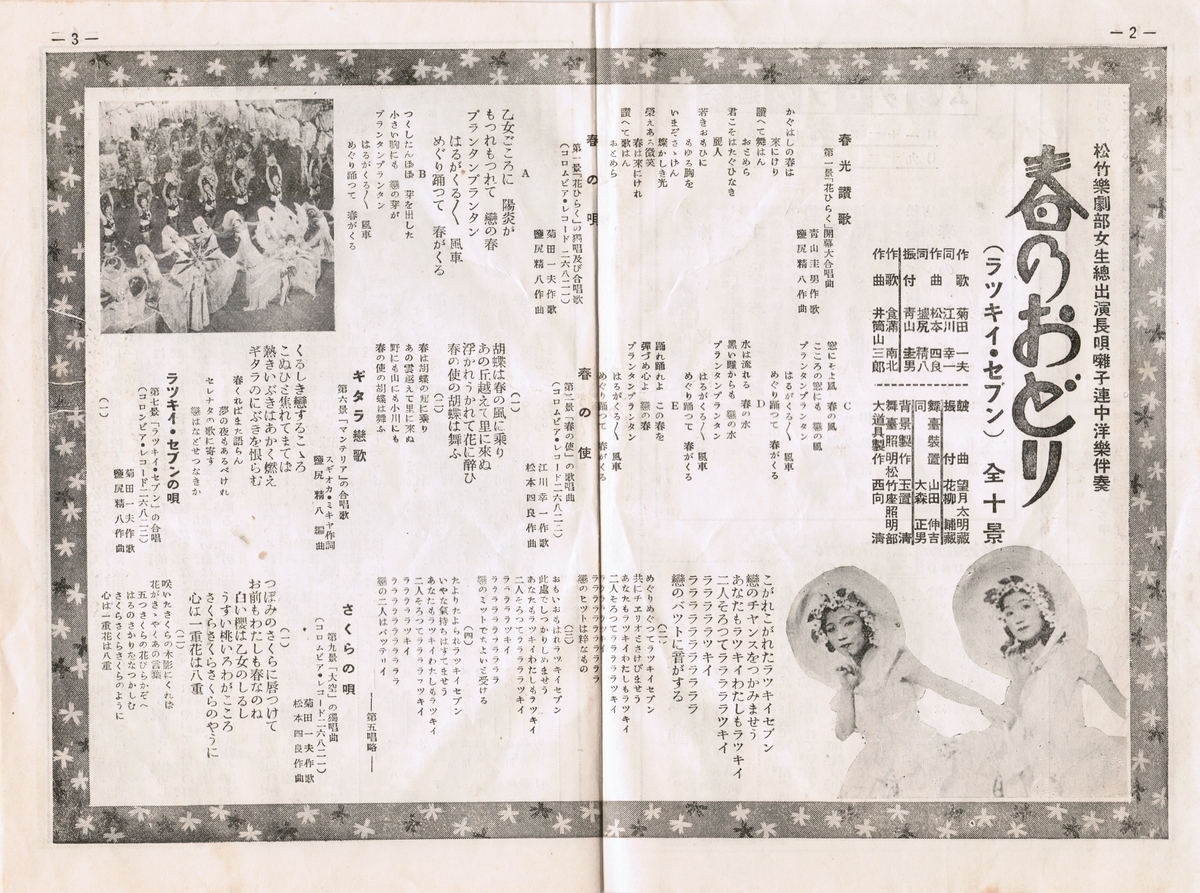 — 2 —
松竹樂劇部女生總出演長唄囃子連中洋樂伴奏
春のおどり
(ラツキイ・セブン) 全十景
作歌 菊田一夫
同 江川幸一
作曲 松本四良
同 鹽尻精八
振付 靑山圭男
作歌 食滿南北
作曲 井筒山三郎
皷曲 望月太明藏
振付 花柳輔藏
舞臺裝置 山田伸吉
同 大森正男
背景製作 玉置淸
舞臺照明 松竹座照明部
大道具製作 西向淸
春光讃歌
第一景「花ひらく」開幕大合唱曲
靑山圭男作歌
鹽尻精八作曲
かぐはしの春は
來にけり
讃へて舞はん
おとめら
君こそはたぐひなき
麗人
若きおもひに
もゆる胸を
いまぞさゝげん
燦かしき光
榮えある微笑
春は來にけれ
讃へて歌はん
おとめら
春の唄
第一景「花ひらく」の獨唱及び合唱歌
(コロムビア・レコード二六八二一)
菊田一夫作歌
鹽尻精八作曲
A
乙女ごころに 陽炎が
もつれもつれて 戀の春
プランタンプランタン
はるがくる〳〵 風車
めぐり踊つて 春がくる
B
つくしたんぽぽ 芽を出した
小さい胸にも 戀の芽が
プランタンプランタン
はるがくる〳〵 風車
めぐり踊つて 春がくる
C
窓にそよ風 春の風
こころの窓にも 戀の風
プランタンプランタン
はるがくる〳〵 風車
めぐり踊つて 春がくる
D
水は流れる 春の水
黑い瞳からも 戀の水
プランタンプランタン
はるがくる〳〵 風車
めぐり踊つて 春がくる
E
踊れ踊れよ この春を
彈づめ心よ 戀の春
プランタンプランタン
はるがくる〳〵 風車
めぐり踊つて 春がくる
春の使
第二景「春の使」の歌唱曲
(コロムビア・レコード二六八二二)
江川幸一作歌
松本四良作曲
(一)
胡蝶は春の風に乘り
あの丘越えて里に來ぬ
浮かれうかれて花に醉ひ
春の使の胡蝶は舞ふ
(二)
春は胡蝶の翅に乘り
あの雲越えて里に來ぬ
野にも山にも小川にも
春の使の胡蝶は舞ふ
ギタラ戀歌
第六景「マンテリア」の合唱歌
スギオカ・ミキヤ作詞
鹽尻精八編曲
くるしき戀するこゝろ
こぬひと焦れてまてば
熱きいぶきはあかく燃え
ギタラのにぶきを恨らむ
春くればまた語らん
夢の夜もあるべけれ
セレナタの歌に寄す
戀はなどせつなきか
ラツキイ・セブンの唄
第七景「ラツキイ・セブン」の合唱
(コロムビア・レコード二六八二二)
菊田一夫作歌
鹽尻精八作曲
(一)
こがれこがれたラツキイセブン
戀のチヤンスをつかみませう
あなたもラツキイわたしもラツキイ
二人そろつてララララツキイ
ララララツキイ
ララララララララララ
戀のバツトに音がする
(二)
めぐりめぐつてラツキイセブン
共にチエリオとさけびませう
あなたもラツキイわたしもラツキイ
二人そろつてララララツキイ
ララララツキイ
ララララララララララ
戀のヒツトは粹なもの
(三)
おもいおもはれラツキイセブン
此處でしつかりしめませう
あなたもラツキイわたしもラツキイ
二人そろつてララララツキイ
ララララツキイ
ララララララララララ
戀のミツトでちよいと受ける
(四)
たよりたよられラツキイセブン
いやな氣持ちはすてませう
あなたもラツキイわたしもラツキイ
二人そろつてララララツキイ
ララララツキイ
ララララララララララ
戀の二人はバツテリイ
——第五唱略——
さくらの唄
第九景「大空」の獨唱曲
(コロムビア・レコード二六八二一)
菊田一夫作歌
松本四良作曲
(一)
つぼみのさくらに唇つけて
お前もわたしも春なのね
白い櫻は乙女のしるし
うすい桃いろわがこころ
さくらさくらさくらのやうに
心は一重花は八重
(二)
咲いたさくらの木影にくれば
花がさゝやくあの言葉
五つさくらの花びらかぞへ
はるのさかりたなつかしむ
さくらさくらさくらのように
心は一重花は八重
— 3 —